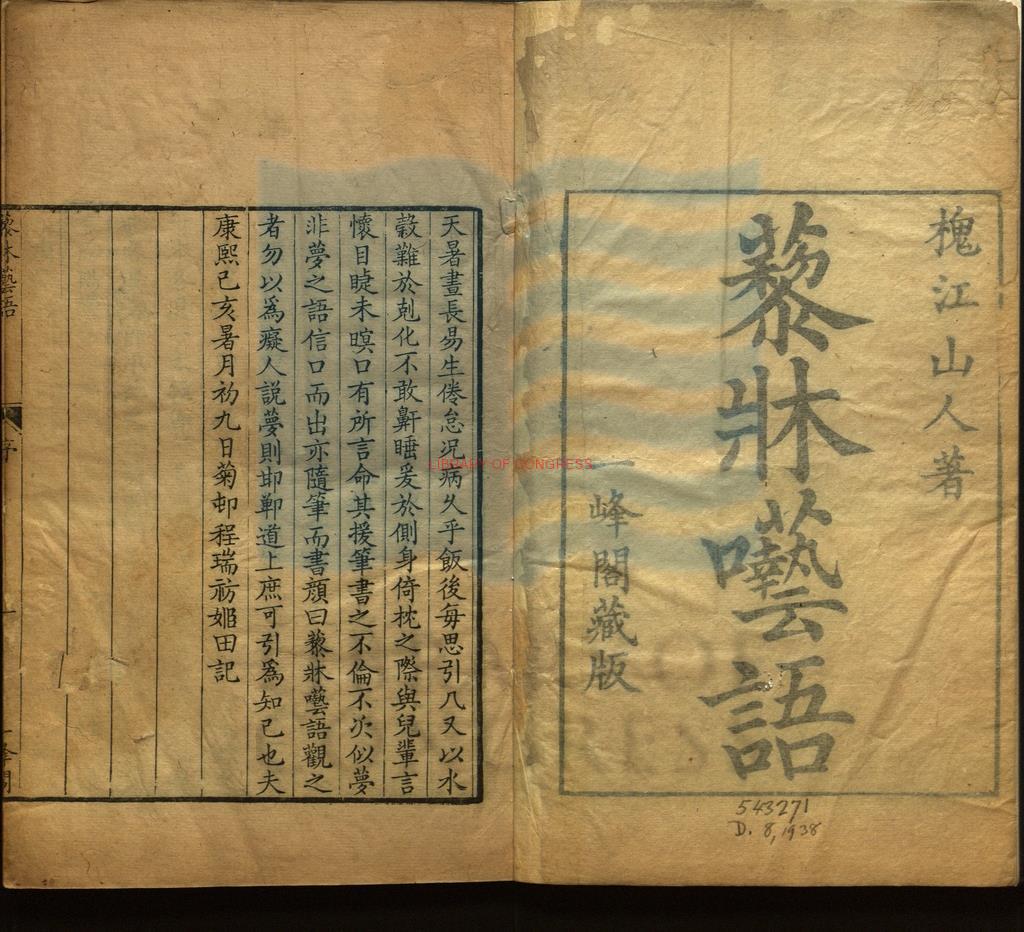 槐江山人著
藜牀囈語
一峰閣藏版
543271
D. 8, 1938
LIBRARY OF CONGRESS
天暑晝長易生倦怠況病久乎飯後每思引几又以水
穀難於剋化不敢鼾睡爰於側身倚枕之際與兒輩言
懷目睫未瞑口有所言命其援筆書之不倫不次似夢
非夢之語信口而出亦隨筆而書顏曰藜牀囈語觀之
者勿以爲癡人説夢則邯鄲道上庶可引爲知己也夫
康熙己亥暑月初九日菊邨程瑞祊姬田記
藜牀囈語
序
一
一峰閣